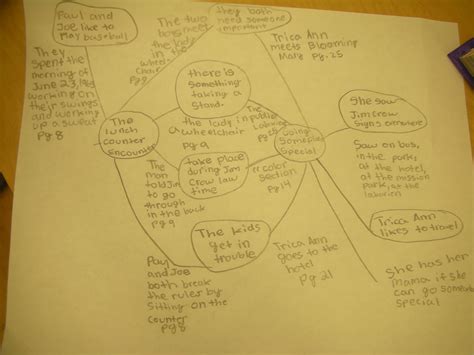 Paul and
Joe like to
Play baseball
They
spent the
morning of
June 23,
working on
their swings
and working
up a sweat
pg 8
The two
boys meet
the lady
in the
wheel
chair
pg 9
they both
need someone
important
Trica Ann
meets Blooming
Mary pg. 25
there is
something
taking a
stand.
The
lunch
counter
encounter
the lady in
a wheelchair
pg 9
The
in public
Going
Someplace
Special
She saw
Jim Crow
Signs
Saw on bus,
in the
park, at
the hotel,
at the mission
park, at
the
The
man
told Jim
to go
through
in the back
pg 9
take place
during Jim
Crow law
time
color
section
pg 14
The kids
get in
trouble
Paul
and Joe
both break
the rules by
Sitting on the
Counter
pg 8
Trica Ann
goes to the
hotel
pg 21
Tricca Ann
likes to travel
She has her
mama if she
can go somewhere
special